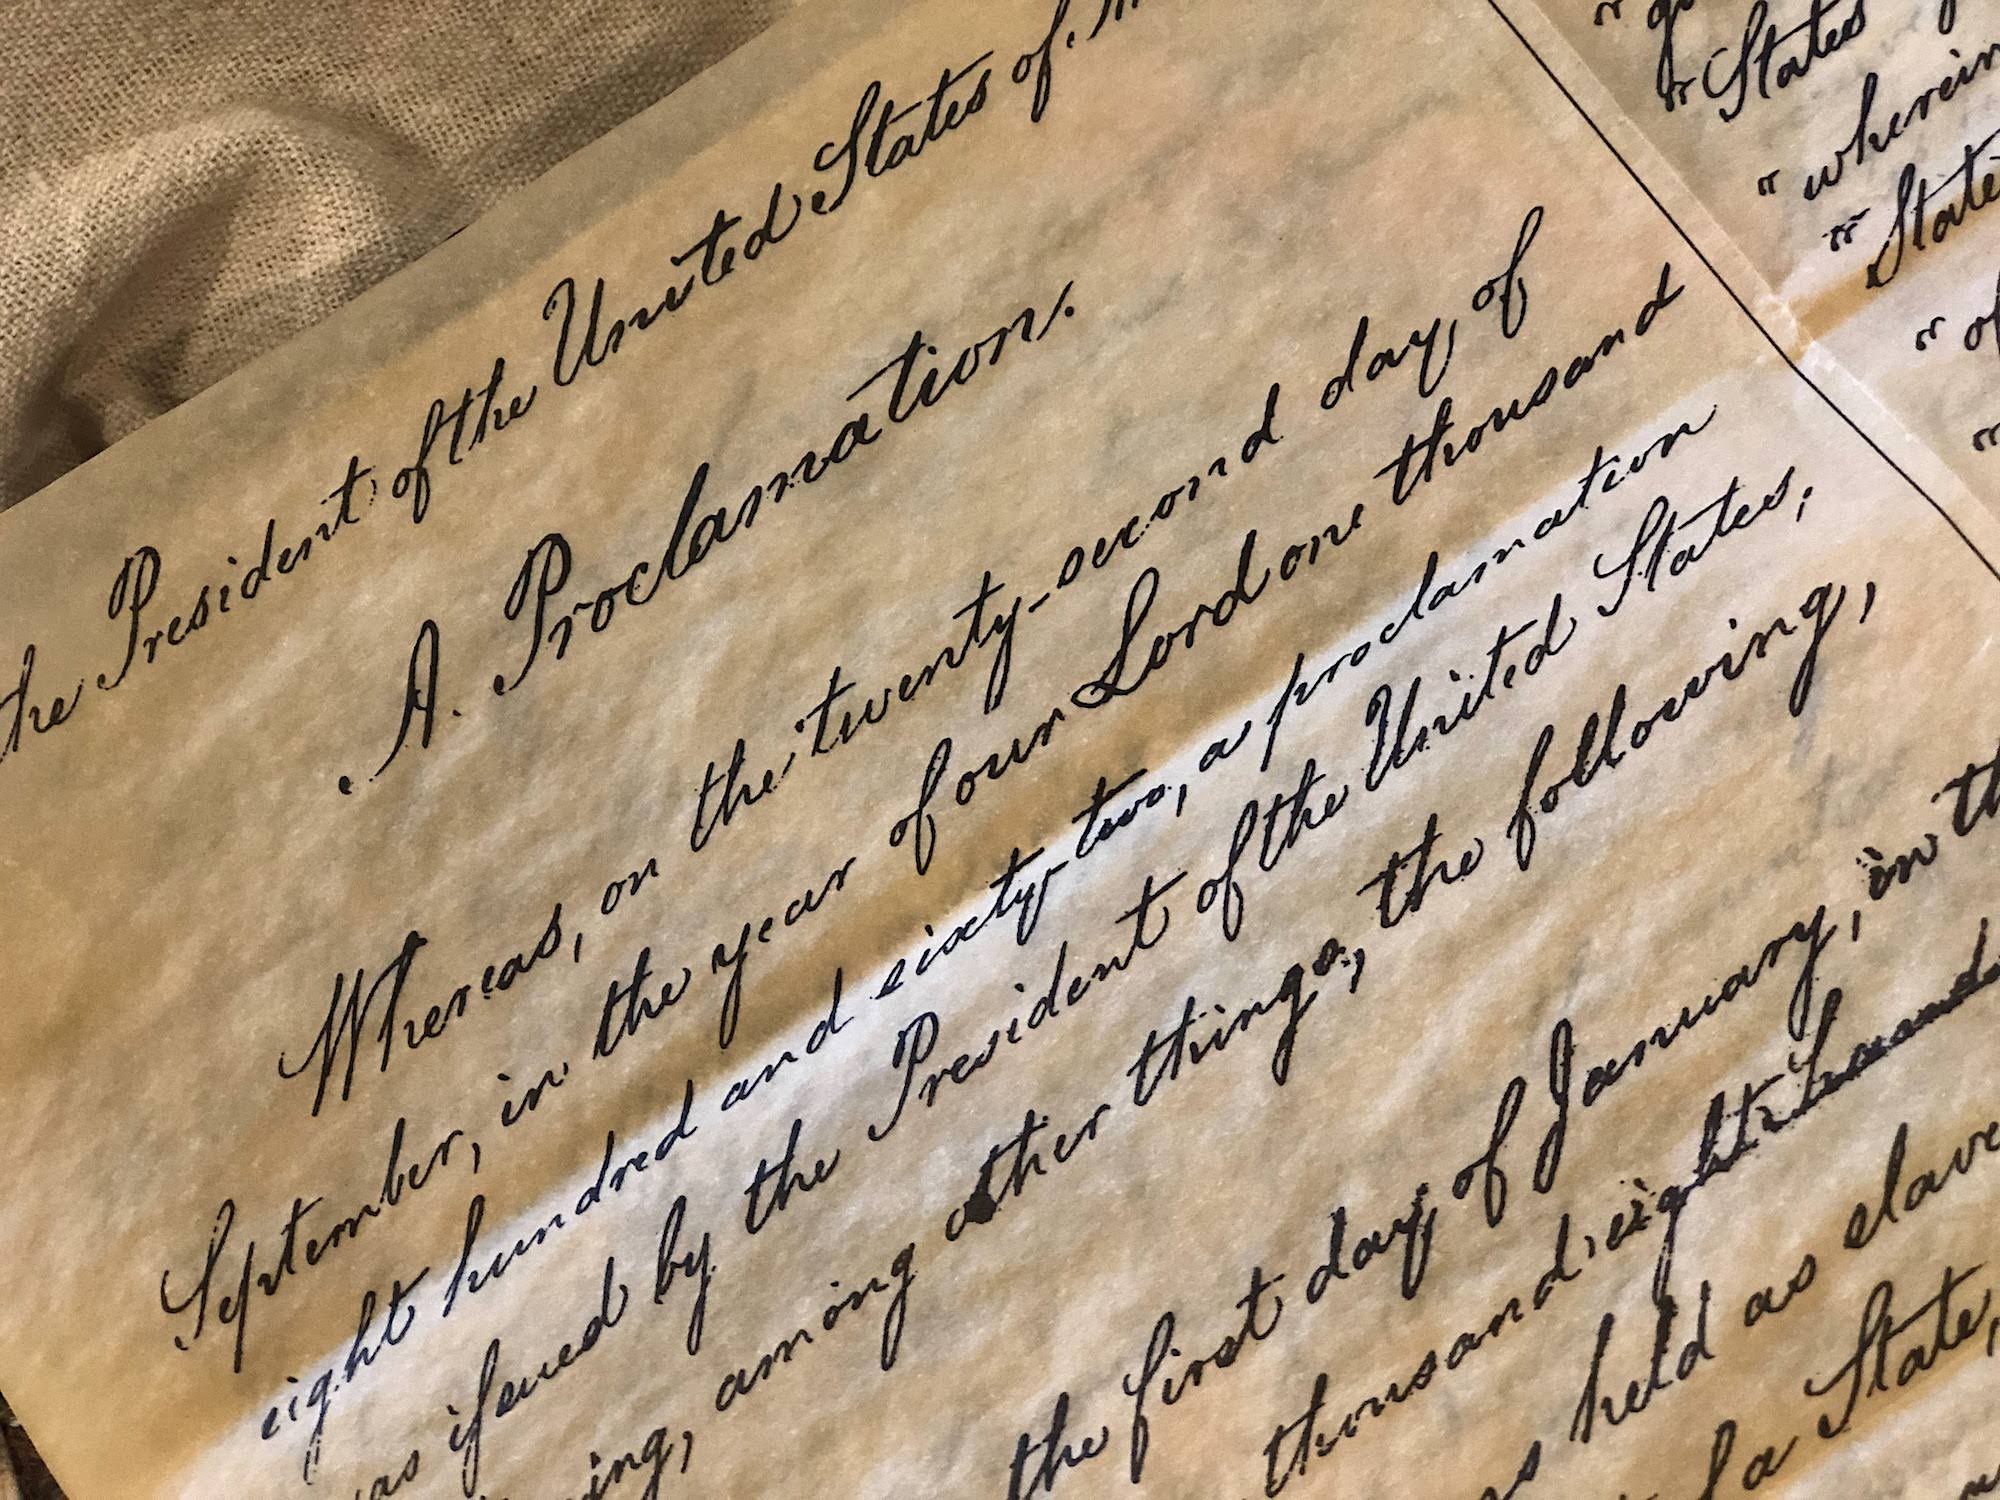 the President of the United States of
A. Proclamation.
Whereas, on the twenty-second day of
September, in the year of our Lord one thousand
eight hundred and sixty two, a proclamation
as ifsued by the President of the United States,
ing, among other things, the following,
the first day of January, in th
thousand eight hund
held as slave
f a State,
"States
"wherein
"State
"of